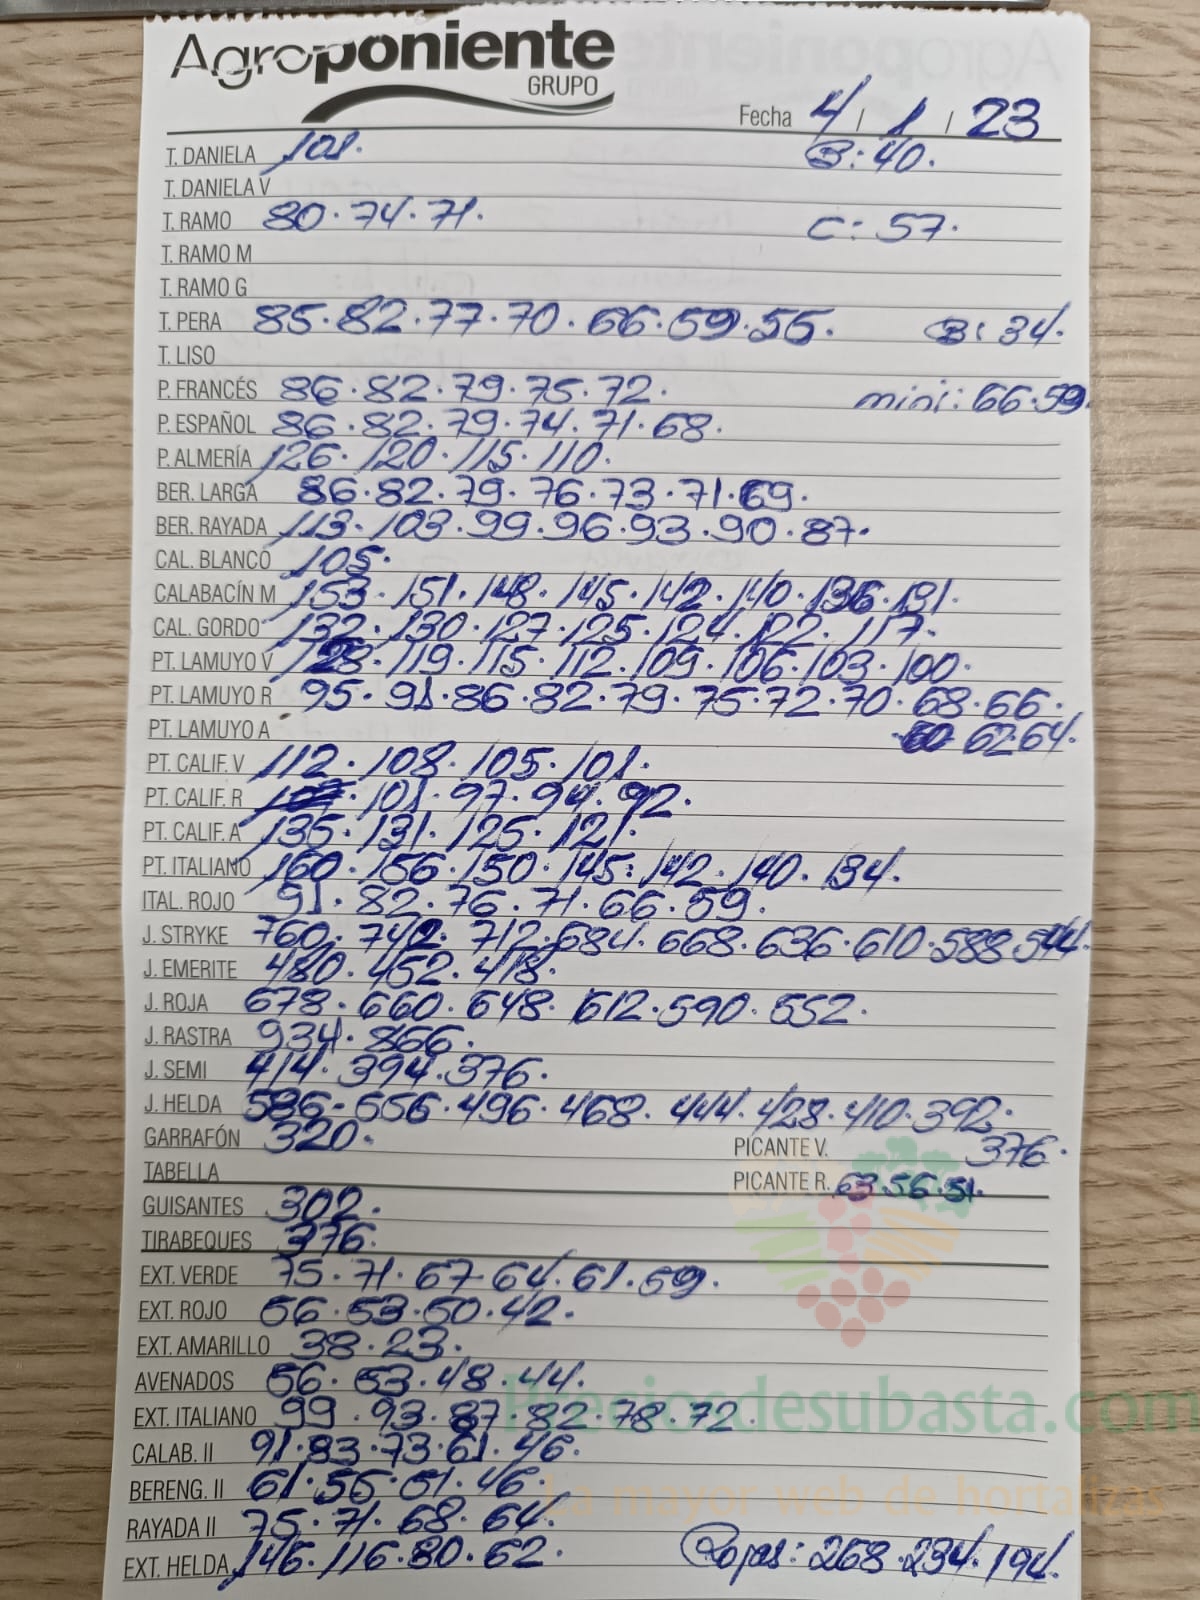 Agroponiente
GRUPO
Fecha 4 / 1 / 23
T. DANIELA 101. B: 40.
T. DANIELA V
T. RAMO 80. 74. 71. C: 57.
T. RAMO M
T. RAMO G
T. PERA 85. 82. 77. 70. 66. 59. 55. B: 34.
T. LISO
P. FRANCÉS 86. 82. 79. 75. 72. mini: 66. 59
P. ESPAÑOL 86. 82. 79. 74. 71. 68.
P. ALMERÍA 126. 120. 115. 110.
BER. LARGA 86. 82. 79. 76. 73. 71. 69.
BER. RAYADA 113. 103. 99. 96. 93. 90. 87.
CAL. BLANCO 105.
CALABACÍN M 153. 151. 148. 145. 142. 140. 136. 131.
CAL. GORDO 132. 130. 127. 125. 124. 122. 117.
PT. LAMUYO V 119. 115. 112. 109. 106. 103. 100.
PT. LAMUYO R 95. 91. 86. 82. 79. 75. 72. 70. 68. 66.
PT. LAMUYO A 60 62. 64.
PT. CALIF. V 112. 108. 105. 101.
PT. CALIF. R 101. 97. 94. 92.
PT. CALIF. A 135. 131. 125. 121.
PT. ITALIANO 160. 156. 150. 145. 142. 140. 134.
ITAL. ROJO 91. 82. 76. 71. 66. 59.
J. STRYKE 760. 742. 712. 684. 668. 636. 610. 588. 544.
J. EMERITE 480. 452. 418.
J. ROJA 678. 660. 648. 612. 590. 552.
J. RASTRA 934. 866.
J. SEMI 414. 394. 376.
J. HELDA 556. 496. 468. 444. 428. 410. 392.
GARRAFÓN 320. PICANTE V. 376.
TABELLA PICANTE R. 63. 56. 51.
GUISANTES 302.
TIRABEQUES 376.
EXT. VERDE 75. 71. 67 64. 61. 59.
EXT. ROJO 56. 53. 50. 42.
EXT. AMARILLO 38. 23.
AVENADOS 56. 53. 48. 44.
EXT. ITALIANO 99. 93. 87. 82. 78. 72.
CALAB. II 91. 83. 73. 61. 46.
BERENG. II 61. 56. 51. 46.
RAYADA II 75. 71. 68. 64.
EXT. HELDA 146. 116. 80. 62. Rojas: 268. 234. 194.
Preciosdesubasta.com
La mayor web de hortalizas